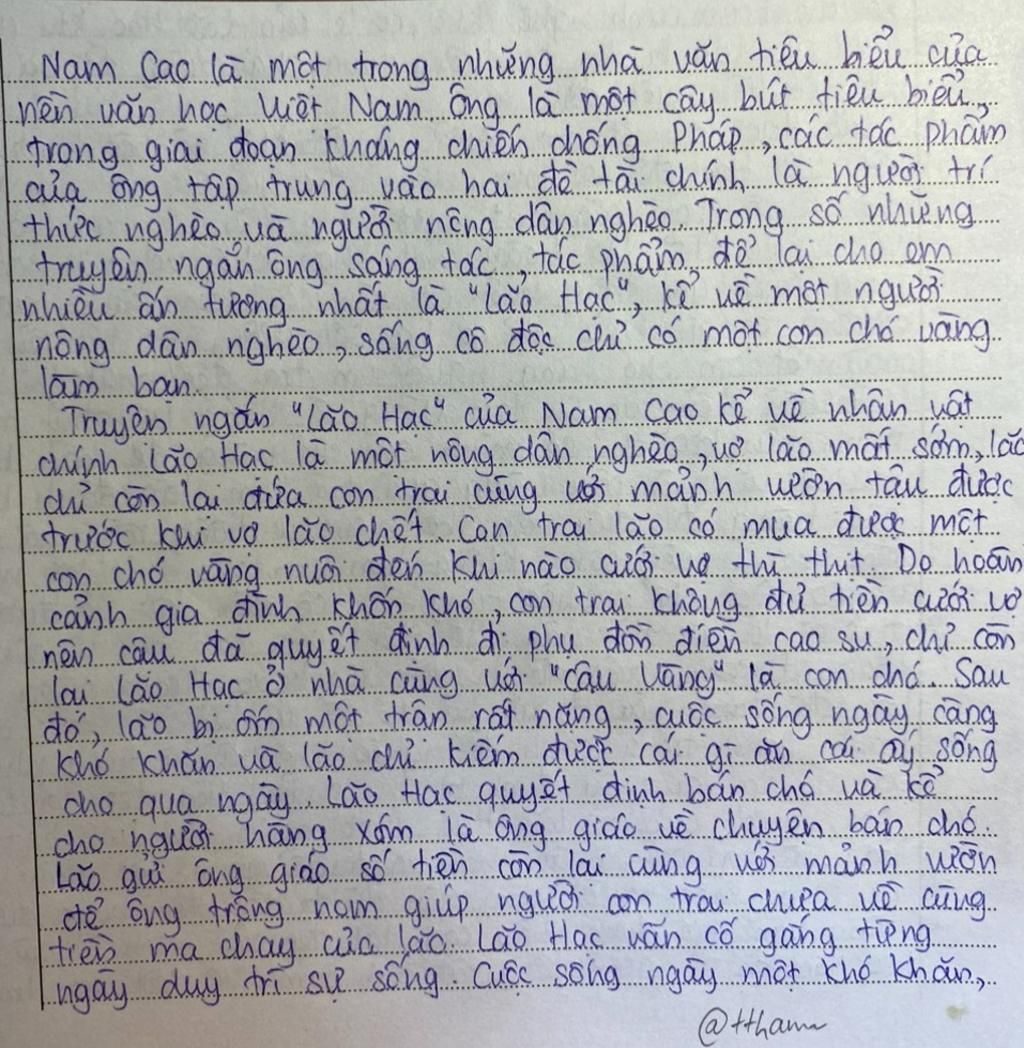 Nam Cao là một trong những nhà văn tiêu biểu của
nền văn học Việt Nam. Ông là một cây bút tiêu biểu,
trong giai đoạn kháng chiến chống Pháp, các tác phẩm
của ông tập trung vào hai đề tài chính là người trí
thức nghèo và người nông dân nghèo. Trong số những
truyện ngắn ông sáng tác, tác phẩm để lại cho em
nhiều ấn tượng nhất là "Lão Hạc", kể về một người
nông dân nghèo, sống cô độc chỉ có một con chó vàng
làm bạn.
Truyện ngắn "Lão Hạc" của Nam Cao kể về nhân vật
chính Lão Hạc là một nông dân nghèo, vợ lão mất sớm, lão
chỉ còn lại đứa con trai cùng với mảnh vườn tậu được
trước khi vợ lão chết. Con trai lão có mua được một
con chó vàng nuôi đến khi nào cưới vợ thì thịt. Do hoàn
cảnh gia đình khốn khó, con trai không đủ tiền cưới vợ
nên cậu đã quyết định đi phụ đồn điền cao su, chỉ còn
lại Lão Hạc ở nhà cùng với "cậu Vàng" là con chó. Sau
đó, lão bị ốm một trận rất nặng, cuộc sống ngày càng
khó khăn và lão chỉ kiếm được cái gì ăn cái ấy sống
cho qua ngày. Lão Hạc quyết định bán chó và kể
cho người hàng xóm là ông giáo về chuyện bán chó.
Lão gửi ông giáo số tiền còn lại cùng với mảnh vườn
để ông trông nom giúp người con trai chưa về cùng
tiền ma chay của lão. Lão Hạc vẫn cố gắng từng
ngày duy trì sự sống. Cuộc sống ngày một khó khăn,
@ttham